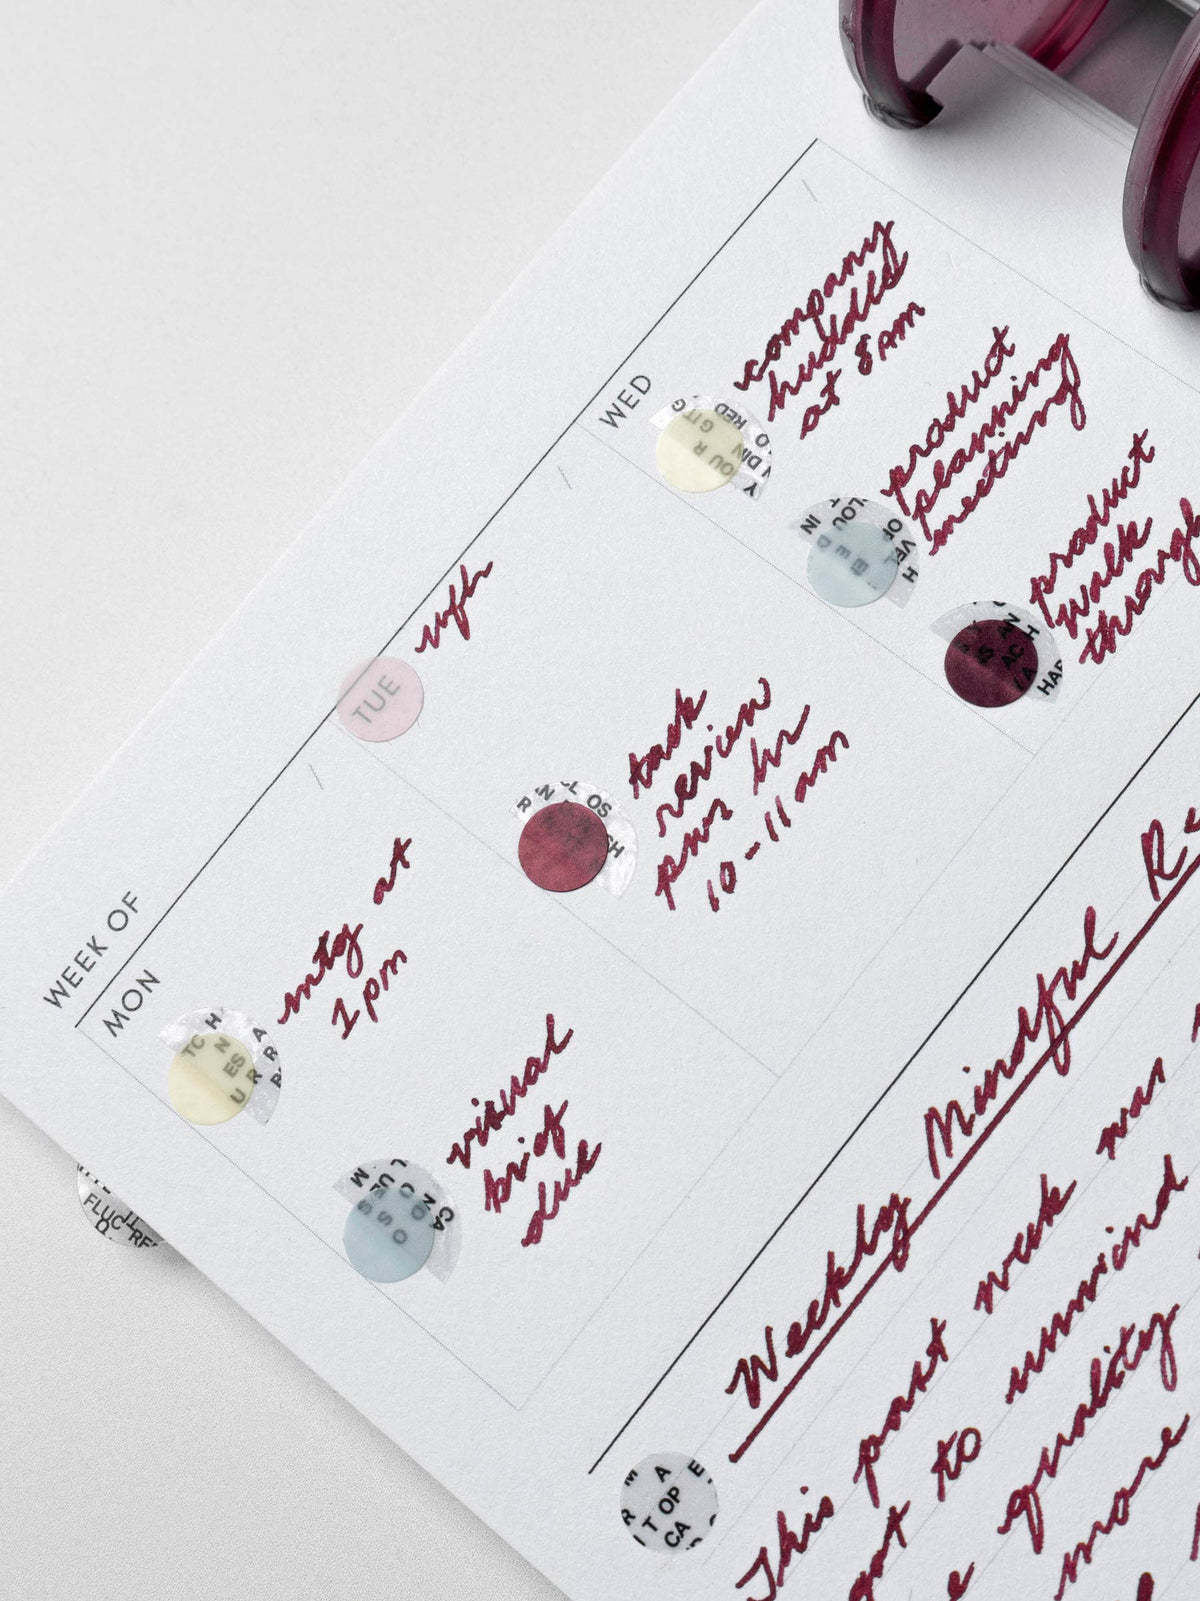 WEEK OF
MON
mtg at
1 pm
visual
brief
due
TUE
wfh
task
review
pws hr
10-11am
WED
company
huddle
at 8AM
product
planning
meeting
product
walk
through
Weekly Mindful
This past week was
got to unwind
quality
more